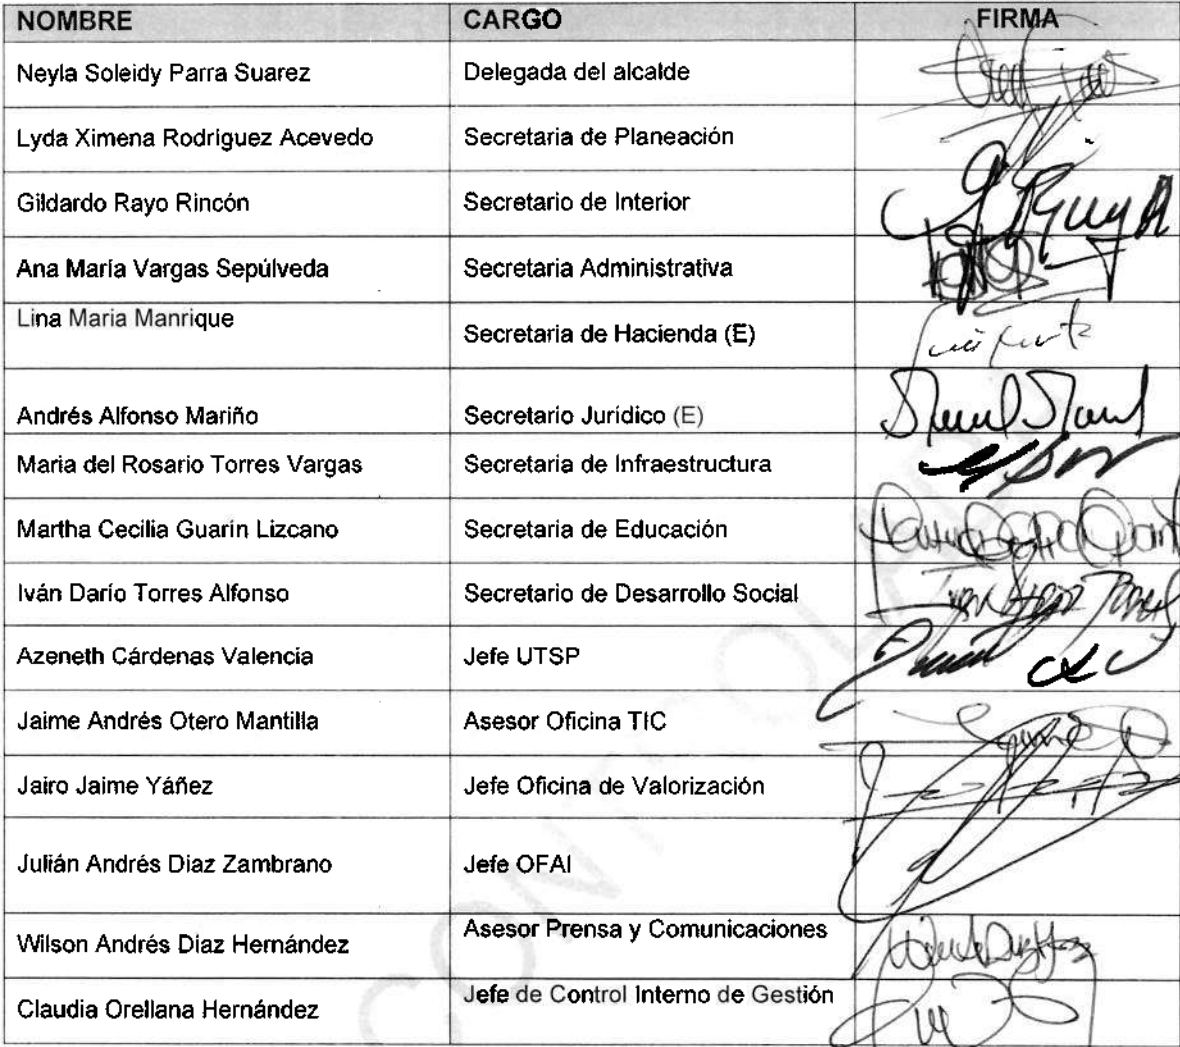 NOMBRE CARGO FIRMA
Neyla Soleidy Parra Suarez Delegada del alcalde
Lyda Ximena Rodriguez Acevedo Secretaria de Planeación
Gildardo Rayo Rincón Secretario de Interior
Ana María Vargas Sepúlveda Secretaria Administrativa
Lina Maria Manrique Secretaria de Hacienda (E)
Andrés Alfonso Mariño Secretario Jurídico (E)
Maria del Rosario Torres Vargas Secretaria de Infraestructura
Martha Cecilia Guarín Lizcano Secretaria de Educación
Iván Darío Torres Alfonso Secretario de Desarrollo Social
Azeneth Cárdenas Valencia Jefe UTSP
Jaime Andrés Otero Mantilla Asesor Oficina TIC
Jairo Jaime Yáñez Jefe Oficina de Valorización
Julián Andrés Diaz Zambrano Jefe OFAI
Wilson Andrés Díaz Hernández Asesor Prensa y Comunicaciones
Claudia Orellana Hernández Jefe de Control Interno de Gestión